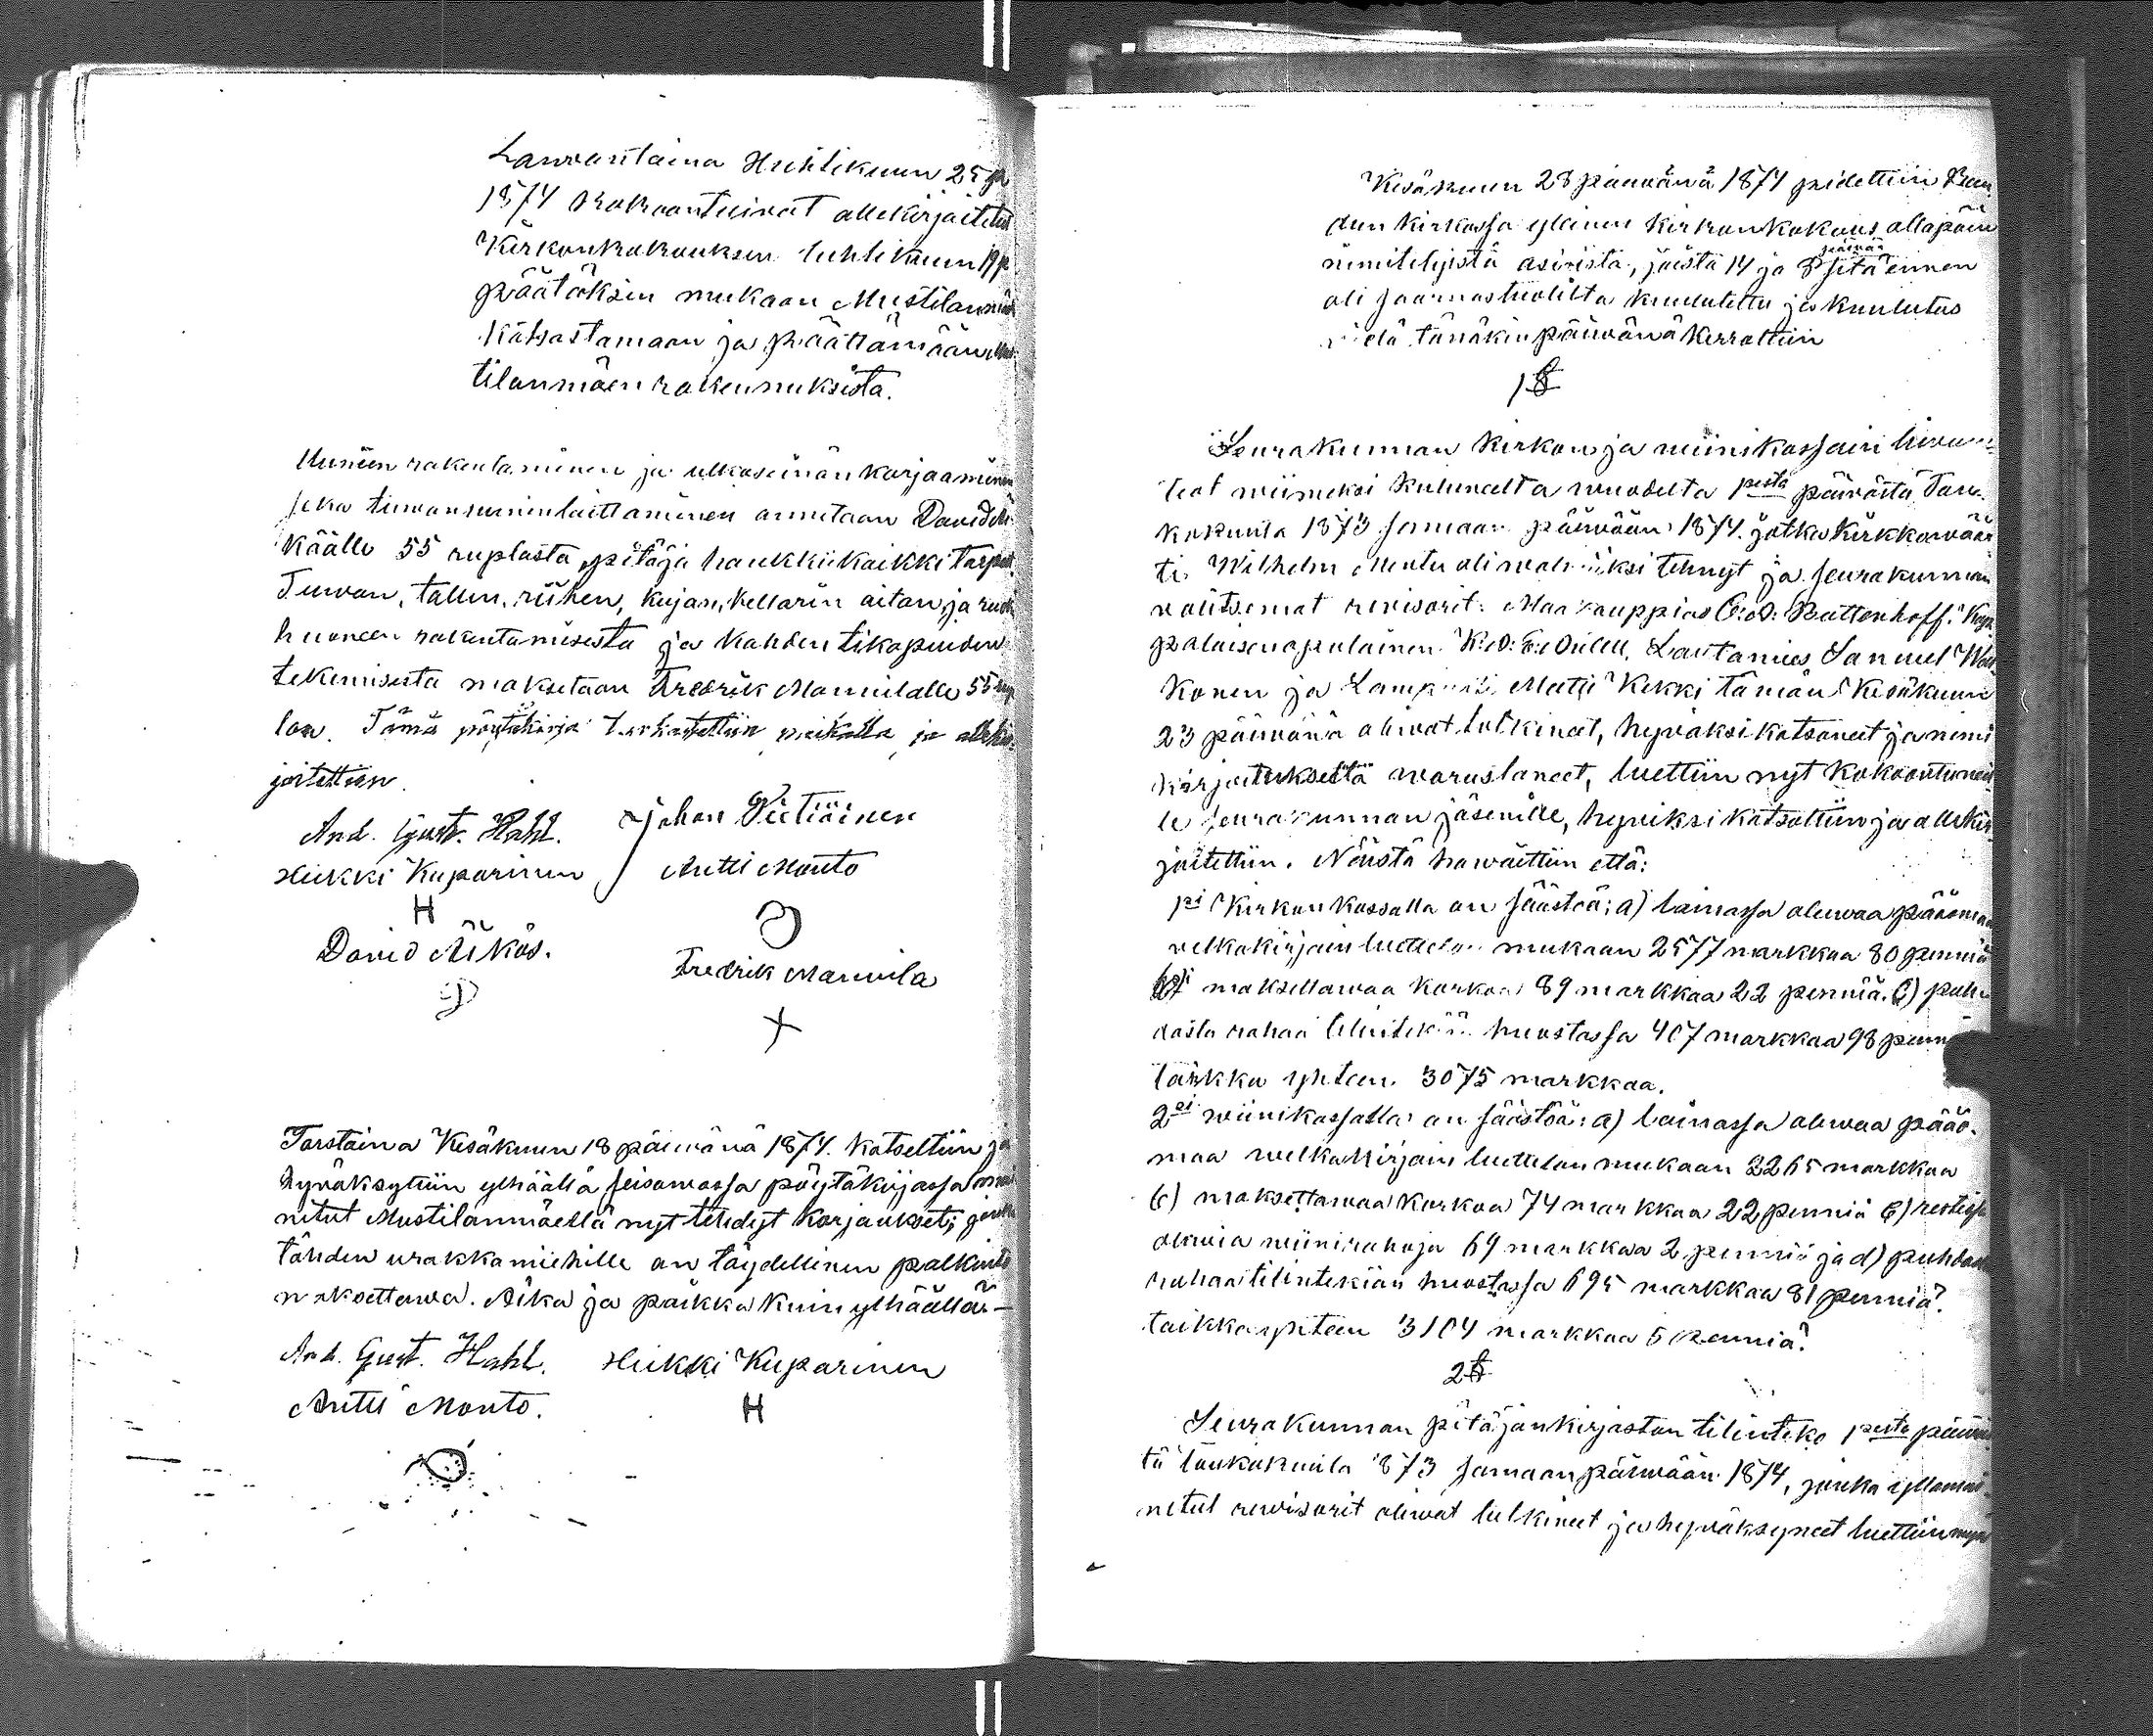 Lauvantaina Huhtikuun 25 p
1874 kokoontuivat allekirjoitetut
Kirkonkokouksen huhtikuun 19 p
päätöksen mukaan Mustilanmäk
katsastamaan ja päättämään Mus-
tilanmäen rakennuksista.
Huneen rakentaminen ja ulkoseinän korjaaminen
seka laittaminen annetaan David Äi-
käälle 55 ruplasta, pitäjä hankkii kaikki tarpeet.
Tuvan, tallin, riihen, kujan, kellarin aitan, ja
huoneen rakentamisesta ja kahden tikapuiden
tekemisestä maksetaan Fredrik Mannilalle 55 rup
laa. Tämä pöytäkirja tarkastettiin paikalla ja allekir-
joitettiin.
And. Gust. Hahl. Johan Pietiäinen
Heikki Kuparinen Antti Monto
H
David Äikäs. Fredrik Mannila
Torstaina Kesäkuun 18 päiwänä 1874. katseltiin ja
hyväksyttiin ylhäällä seisowassa pöytäkirjassa mai
nitut Mustilanmäellä nyt tehdyt korjaukset; jonka
tähden urakkamiehille on täydellinen palkinto
maksettawa. Aika ja paikka kuin ylhäällä. —
And. Gust. Hahl. Heikki Kuparinen
Antti Monto. H
Kesäkuun 28 päiwänä 1874 pidettiin Rau
dun kirkossa yleinen kirkonkokous allapäin
nimitetyistä asioista, joista 14 ja 8 päiwää sitä ennen
oli saarnastuolilta kuulutettu ja kuulutus
wielä tänäkin päiwänä kerrottiin
1 §
Seurakunnan kirkon ja wiinikassain
teot wiimeksi kuluneelta wuodelta 1 pestä päiwästä Tou-
kokuuta 1873 samaan päiwään 1874. jotka kirkkowäär
ti Wilhelm Montu oli walmiiksi tehnyt ja seurakunnan
valitsemat revisorit: Maakauppias Battenhoff.
palaisenapulainen Lautamies Samuel
konen ja Matti Kekki tämän Kesäkuun
23 päiwänä oliwat tutkineet, hyväksi katsoneet ja nimi
kirjoituksellä warustaneet, luettiin nyt kokoontuneil
le seurakunnan jäsenille, hyviksi katsottiin ja allekir
joitettiin. Näistä hawaittiin että:
1 si Kirkon kassalla on säästöä; a) lainassa olewaa pääomaa
velkakirjain luettelon mukaan 2577 markkaa 80 penniä
maksettawaa korkoa 89 markkaa 22 penniä. c) puh-
dasta rahaa tilintekiän huostassa 407 markkaa 98 penn
taikka yhteen 3075 markkaa.
2 si wiinikassalla on säästöä: a) lainassa olewaa pääo-
maa welkakirjain luettelon mukaan 2265 markkaa
b) maksettawaa korkoa 74 markkaa 22 penniä c) restissa
olewia wiinirahoja 69 markkaa 2 penniä ja d) puhdast
rahaa tilintekiän huostassa 695 markkaa 81 penniä.
taikka yhteen 3104 markkaa 5 penniä.
2 §
Seurakunnan pitäjänkirjaston tilinteko 1 pestä päiwäs
tä toukokuuta 1873 samaan päiwään 1874, jonka yllämai-
nitut rewisorit oliwat tutkineet ja hyväksyneet luettiin myös